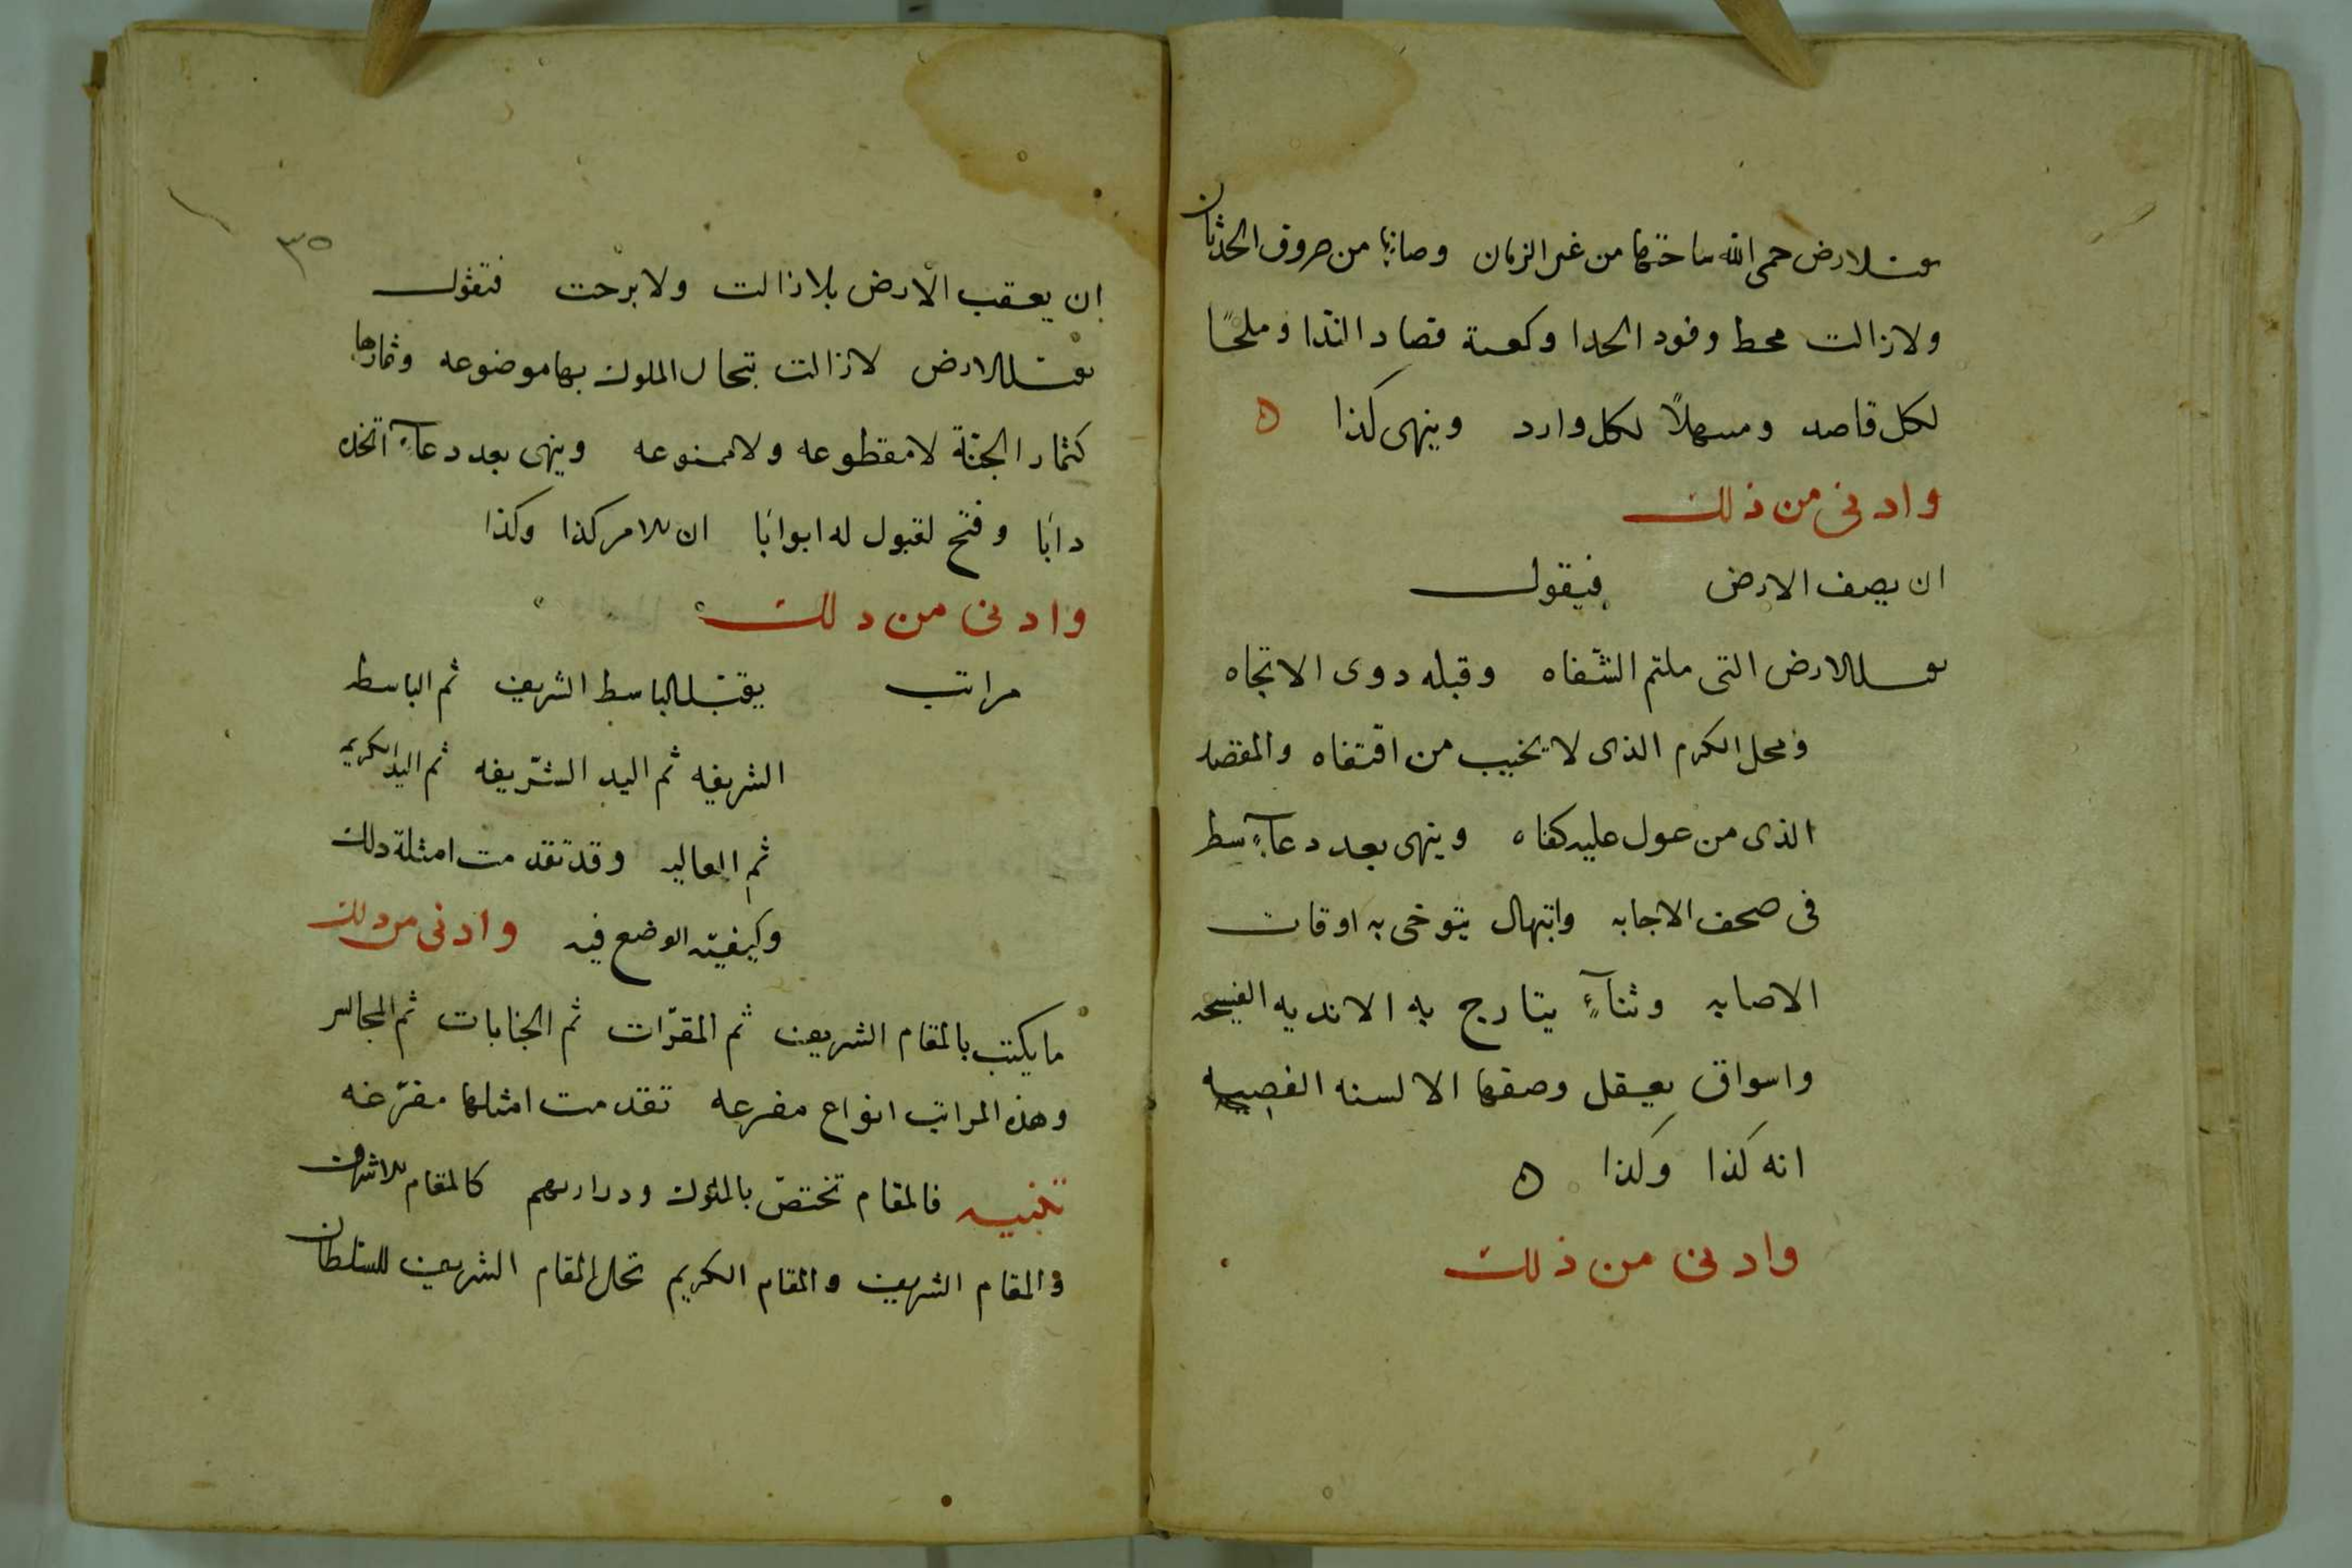 يقبل الارض حمى الله ساحتها من غير الزمان وصانها من صروف الحدثان
ولازالت محط وفود الجدا وكعبة قصاد الندا وملجًا
لكل قاصد ومسهلًا لكل وارد وينهى كذا ه
وادنى من ذلك
ان يصف الارض فيقول
يقبل الارض التى ملتم الشّفاه وقبله دوى الاتجاه
ومحل الكرم الذى لا يخيب من اقتفاه والمقصد
الذى من عول عليه كفاه وينهى بعد دعآءٍ سطر
فى صحف الاجابه وابتهال يتوخى به اوقات
الاصابه وثنآءٍ يتارج به الانديه الفسيحه
واسواق يعقل وصفها الالسنه الفصيحه
انه كذا وكذا ه
وادنى من ذلك
٣٥
ان يعقب الارض بلا زالت ولا برحت فتقول
يقبل الارض لازالت تيجان الملوك بها موضوعه وثمارها
كثمار الجنّة لا مقطوعه ولا ممنوعه وينهى بعد دعآءٍ اتخذه
دابًا وفتح لقبول له ابوابًا ان الامر كذا وكذا
وادنى من دلك
مراتب يقبّل الباسط الشريف ثم الباسط
الشريفه ثم اليد الشّريفه ثم اليد الكريمه
ثم العاليه وقد تقدمت امثلة دلك
وكيفيّه الوضع فيه وادنى من دلك
ما يكتب بالمقام الشريف ثم المقرّات ثم الجنابات ثم المجالس
وهذه المراتب انواع مفرعه تقدمت امثلها مفرّغه
تنبيه فالمقام تختصّ بالملوك ودراريهم كالمقام الاشرف
والمقام الشريف والمقام الكريم تحل المقام الشريف للسّلطان